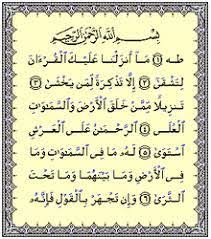 بِسْمِ ٱللَّهِ ٱلرَّحْمَٰنِ ٱلرَّحِيمِ
طه ١ مَآ أَنزَلْنَا عَلَيْكَ ٱلْقُرْءَانَ
لِتَشْقَىٰٓ ٢ إِلَّا تَذْكِرَةً لِّمَن يَخْشَىٰ ٣
تَنزِيلًا مِّمَّنْ خَلَقَ ٱلْأَرْضَ وَٱلسَّمَٰوَٰتِ
ٱلْعُلَى ٤ ٱلرَّحْمَٰنُ عَلَى ٱلْعَرْشِ
ٱسْتَوَىٰ ٥ لَهُۥ مَا فِى ٱلسَّمَٰوَٰتِ وَمَا
فِى ٱلْأَرْضِ وَمَا بَيْنَهُمَا وَمَا تَحْتَ
ٱلثَّرَىٰ ٦ وَإِن تَجْهَرْ بِٱلْقَوْلِ فَإِنَّهُۥ